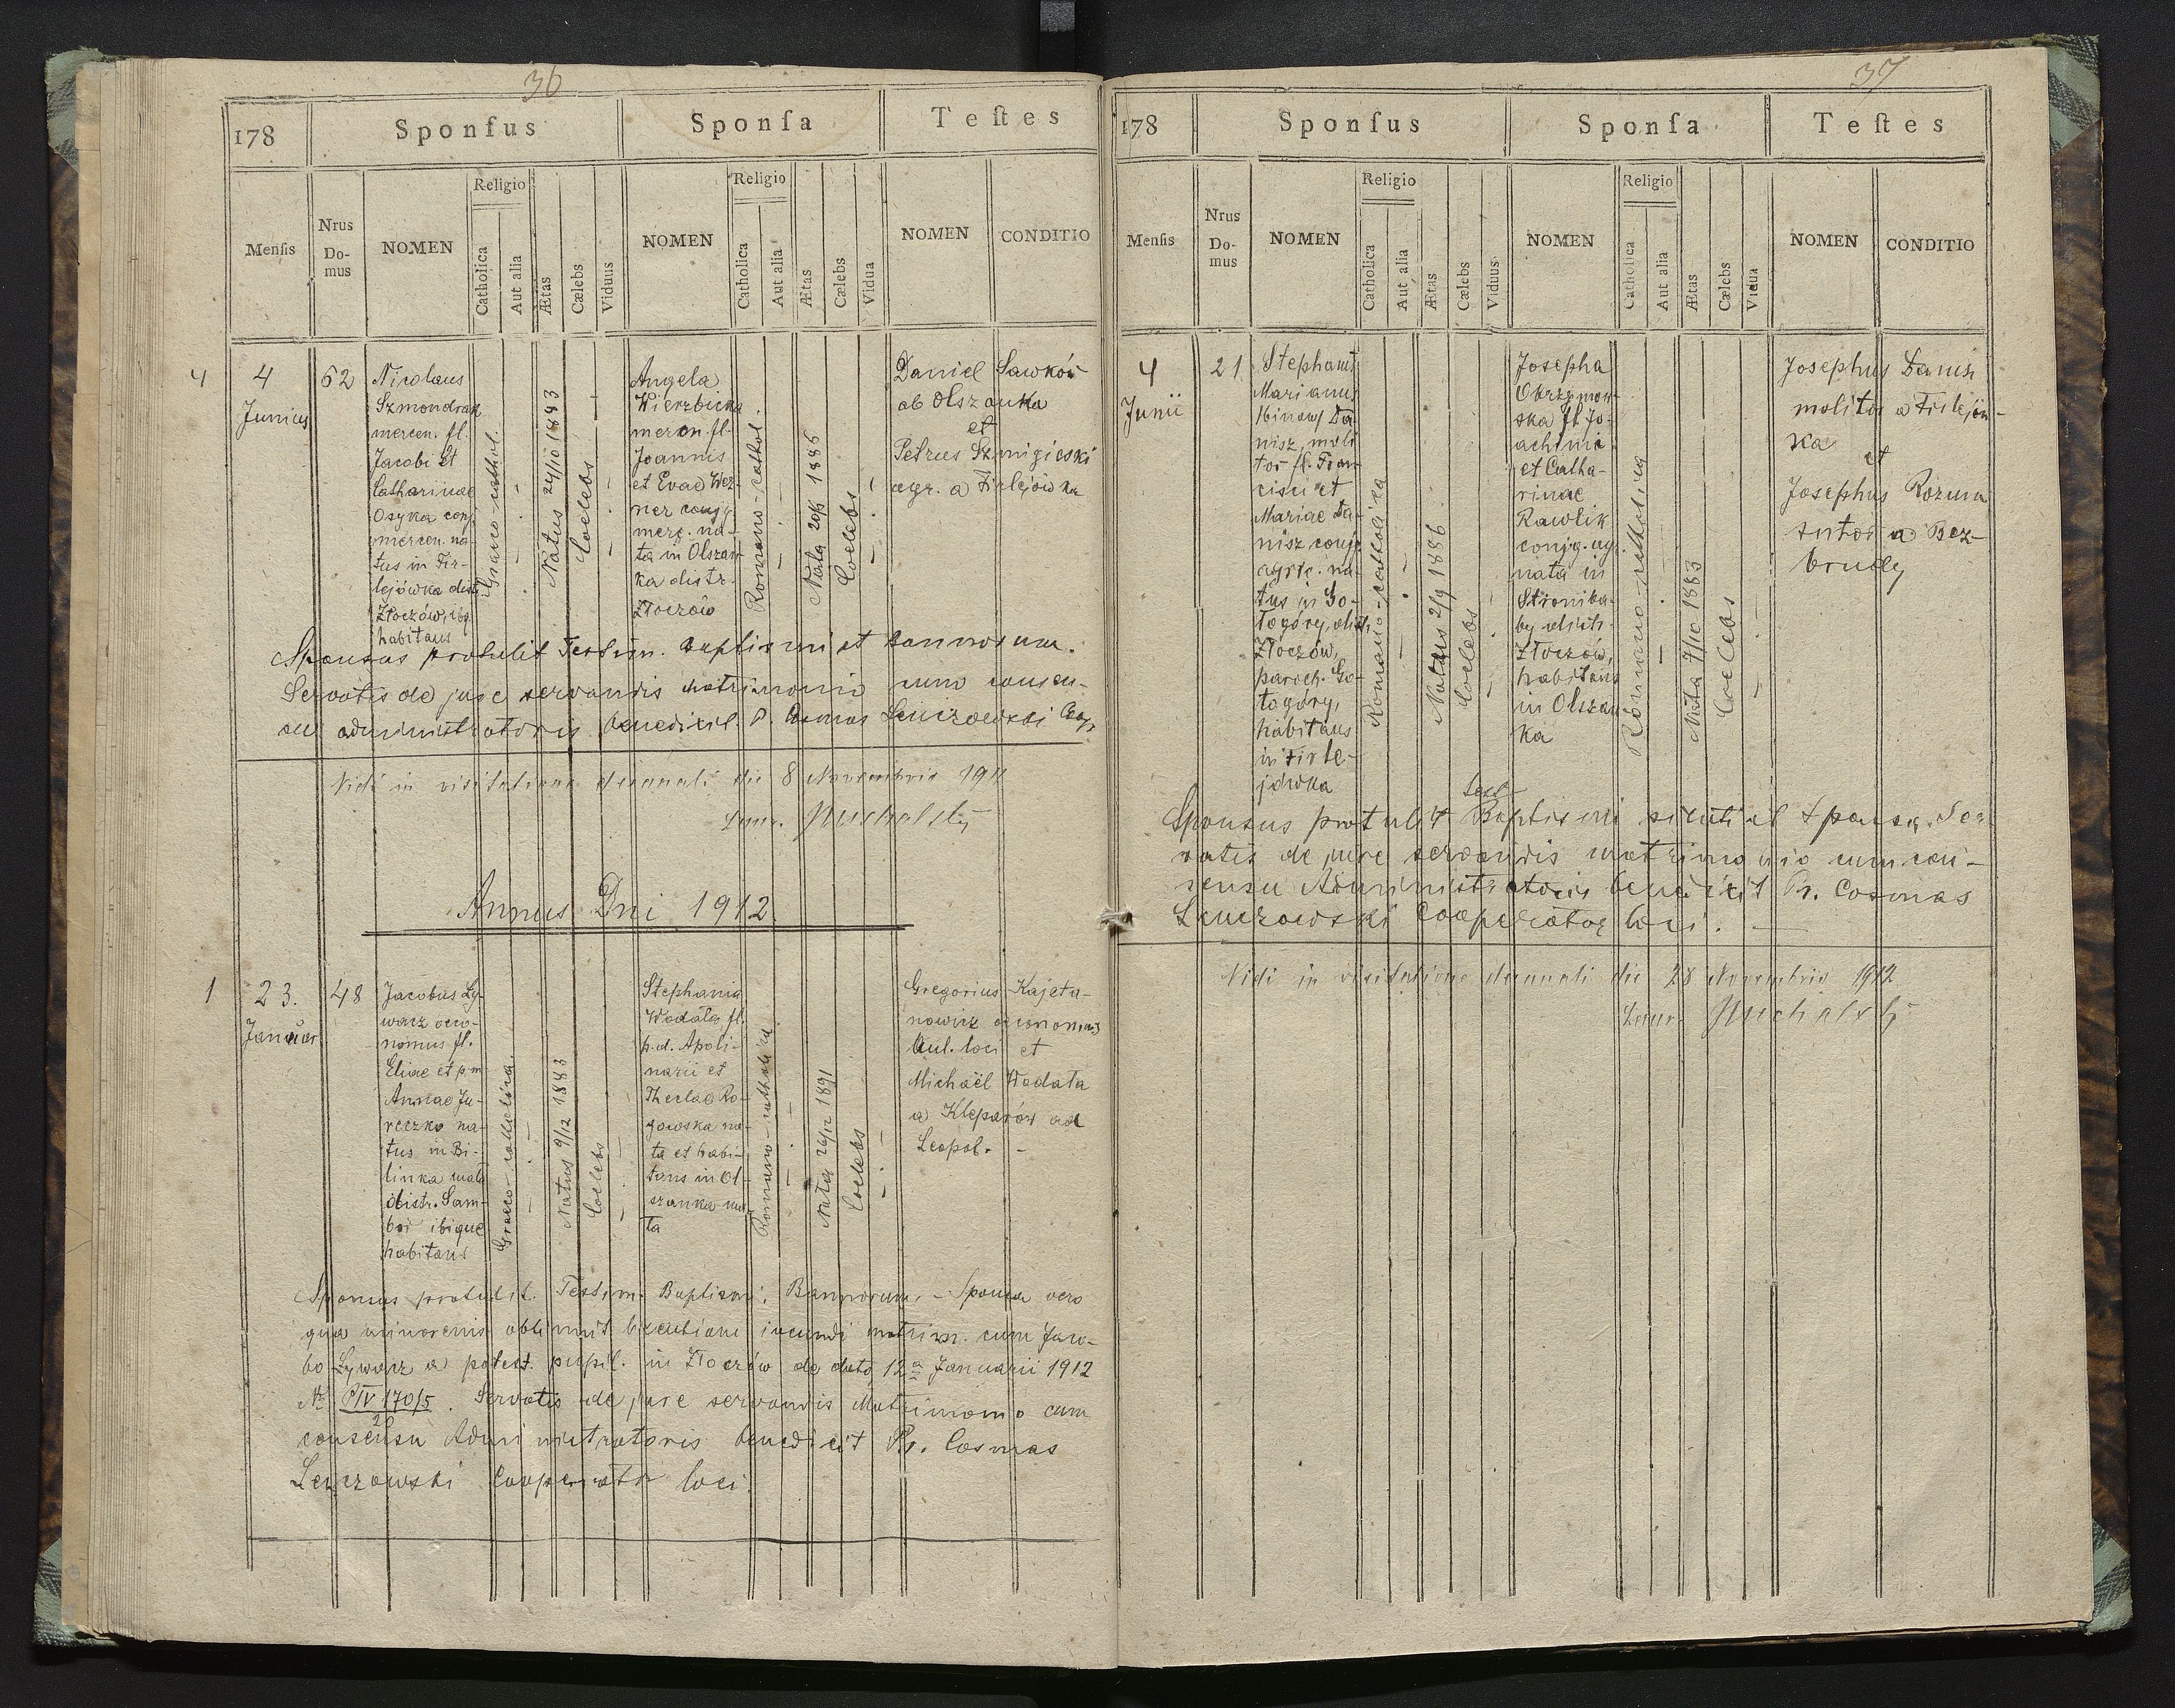 36
178
Sponſus
Sponſa
Teſtes
Menſis
Nrus
Do-
mus
NOMEN
Religio
Catholica
Aut alia
Ætas
Cælebs
Viduus
NOMEN
Religio
Catholica
Aut alia
Ætas
Cælebs
Vidua
NOMEN
CONDITIO
4
4
Junius
62
Nicolaus
Szmondrak
mercen. fl.
Jacobi et
Catharinae
Osyka conj.
mercen. na-
tus in Fir-
lejówka distr.
Złoczów, ibq.
habitans
Graeco-cathol.
Natus 24/10 1883
Coelebs
Angela
Wierzbicka
mercen. fl.
Joannis
et Evae Wez-
ner conjg.
merc. na-
ta in Olszan-
ka distr.
Złoczów
Romano-cathol.
Nata 20/5 1886
Coelebs
Daniel Sawków
ab Olszanka
et
Petrus Szmigielski
agr. a Firlejówka
Sponsus protulit Testim. Baptismi et Bannorum.
Servatis de jure servandis matrimonio cum consen-
su administratoris benedixit P. Cosmas Lenczowski Coop.
Vidi in visitatione decanali die 8 Novembris 1911
Michalski
Annus Dni 1912
1
23.
Januar.
48
Jacobus Ły-
warz oeco-
nomus fl.
Eliae et p.m.
Annae Ju-
reczko na-
tus in Bi-
linka mała
distr. Sam-
bor ibique
habitans
Graeco-catholica
Natus 9/12 1883
Coelebs
Stephania
Wodata fl.
p.d. Apoli-
narii et
Theclae Ro-
gowska na-
ta et habi-
tans in Ol-
szanka ma-
ła
Romano-catholica
Nata 26/12 1891
Coelebs
Gregorius Kajeta-
nowicz oeconomus
Aul. loci et
Michaël Wodata
a Kleparów ad
Leopol. -
Sponsus protulit Testim. Baptismi, Bannorum, - Sponsa vero
qua minorenis obtinuit licentiam ineundi matrim. cum Jaco-
bo Lywarz a potest. pupil. in Złoczów de dato 12a Januarii 1912
No PIV 170/5. Servatis de jure servandis Matrimonio cum
consensu Administratoris benedixit Pr. Cosmas
Lenczowski Cooperator loci.
37
178
Sponſus
Sponſa
Teſtes
Menſis
Nrus
Do-
mus
NOMEN
Religio
Catholica
Aut alia
Ætas
Cælebs
Viduus
NOMEN
Religio
Catholica
Aut alia
Ætas
Cælebs
Vidua
NOMEN
CONDITIO
4
Junii
21
Stephanus
Marianus
(binom) Da-
nisz, moli-
tor fl. Fran-
cisci et
Mariae Da-
nisz conjg.
agric. na-
tus in Go-
łogóry, distr.
Złoczów,
paroch. Go-
łogóry,
habitans
in Firle-
jówka
Romano-catholica
Natus 2/9 1886
Coelebs
Josepha
Obrzymow-
ska fl. Jo-
achimi
et Catha-
rinae
Rawlik
conjg. agr.
nata in
Stroniba-
by distr.
Złoczów,
habitans
in Olszan-
ka
Romano-catholica
Nata 7/10 1883
Coelebs
Josephus Danisz
molitor a Firlejów-
ka et
Josephus Rozum
sutor a Bez-
brudy
Sponsus protulit Test. Baptismi sicuti et Sponsa. Ser-
vatis de jure servandis matrimonio cum con-
sensu Administratoris benedixit Pr. Cosmas
Lenczowski Cooperator loci. —
Vidi in visitatione decanali die 28 Novembris 1912
Michalski